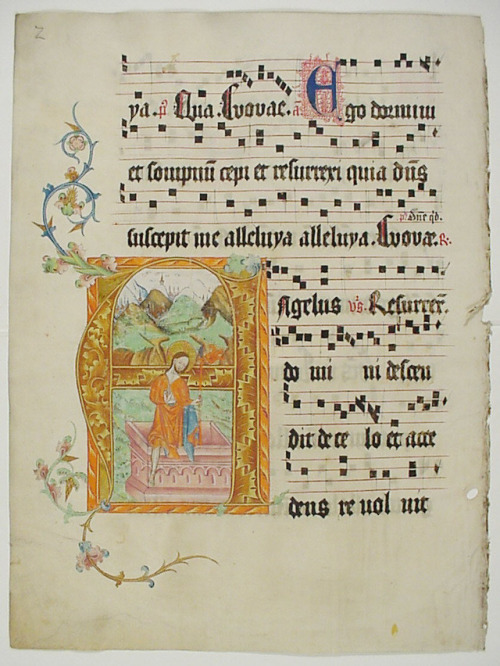 2
ya. p̄ Qua. Evovae. a Ego dormiui
et sompnū cepi et resurrexi quia dn̄s
p̄. Dn̄e qd.
suscepit me alleluya alleluya. Evovae. R.
Angelus vs. Resurrex.
do mi ni descen
dit de ce lo et acce
dens re uol uit